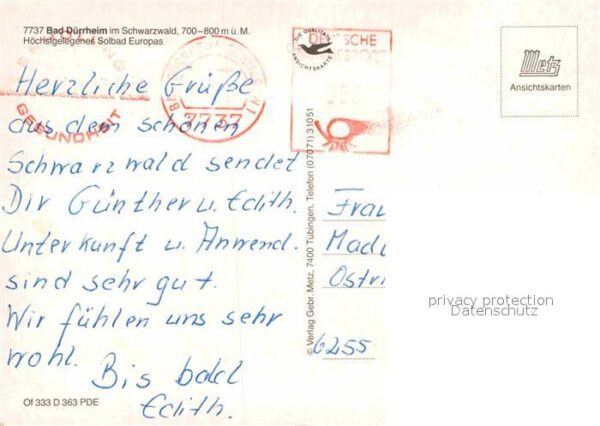 7737 Bad Dürrheim im Schwarzwald, 700–800 m ü. M.
Höchstgelegenes Solbad Europas
Herzliche Grüße
aus dem schönen
Schwarzwald sendet
Dir Günther u. Edith.
Unterkunft u. Anwend.
sind sehr gut.
Wir fühlen uns sehr
wohl.
Bis bald
Edith.
Of 333 D 363 PDE
GESUNDHEIT
7737
DEUTSCHE
DIE QUALITÄTS
ANSICHTSKARTE
© Verlag Gebr. Metz, 7400 Tübingen, Telefon (07071) 31051
Metz
Ansichtskarten
Frau
6255
privacy protection
Datenschutz